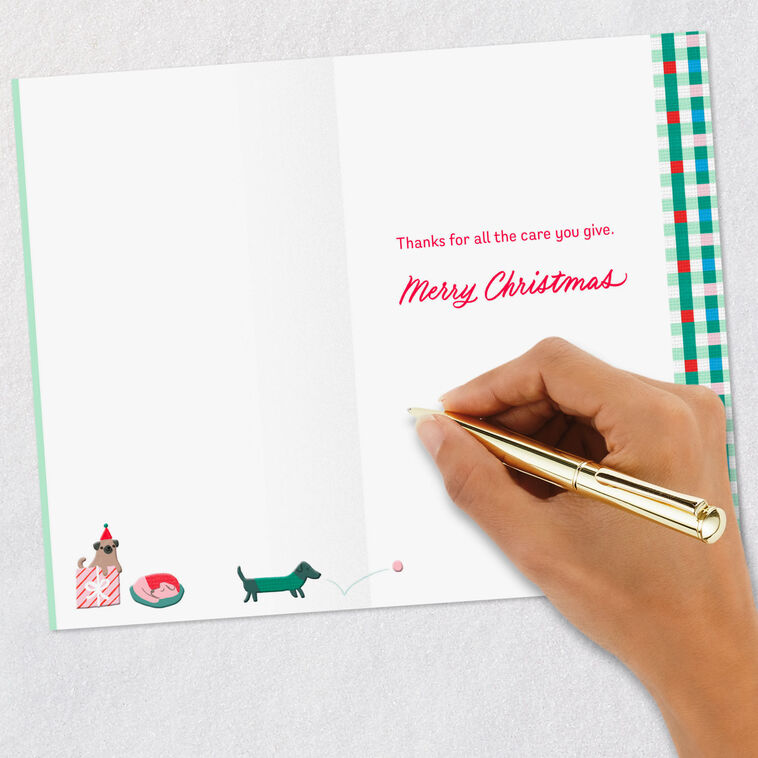 Thanks for all the care you give.
Merry Christmas